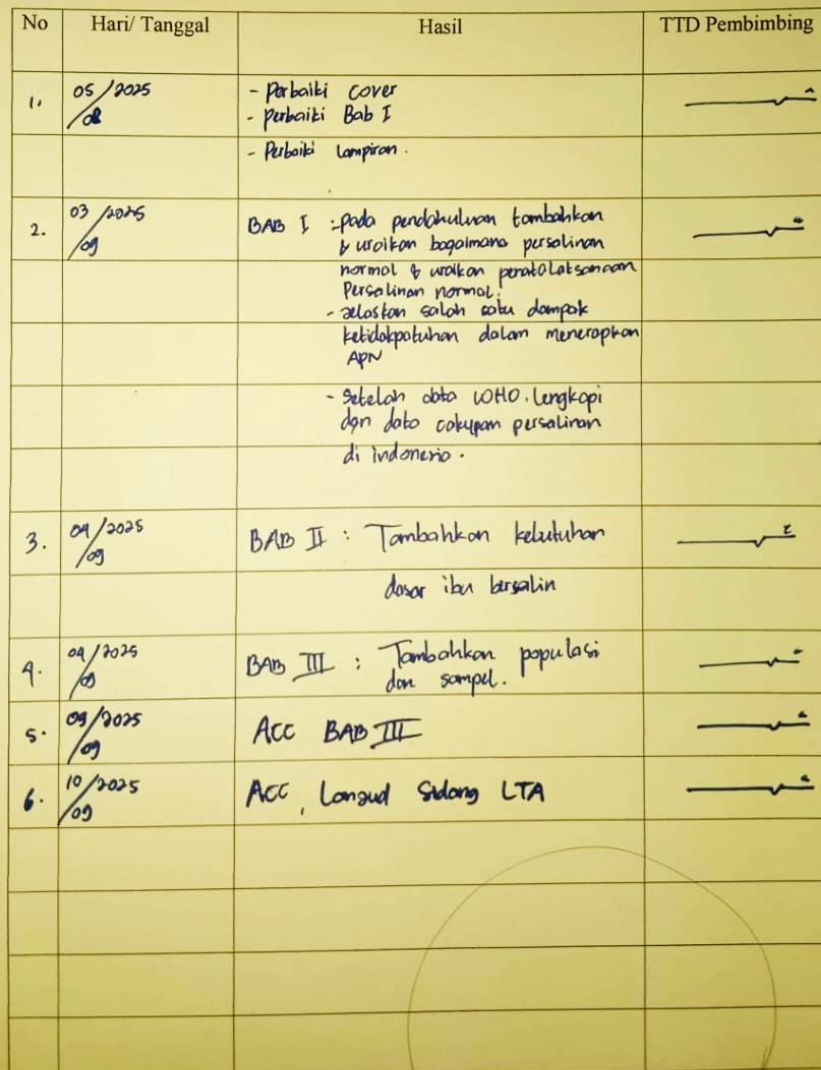 No Hari/ Tanggal Hasil TTD Pembimbing
1. 05/2025 - Perbaiki cover
/08 - perbaiki Bab I
- Perbaiki Lampiran.
2. 03/2025 BAB I :- pada pendahuluan tambahkan
/09 & uraikan bagaimana persalinan
normal & uraikan penatalaksanaan
Persalinan normal.
- Jelaskan salah satu dampak
ketidakpatuhan dalam menerapkan
APN
- Setelah data WHO. Lengkapi
dgn data cakupan persalinan
di indonesia.
3. 04/2025 BAB II : Tambahkan kebutuhan
/09 dasar ibu bersalin
4. 04/2025 BAB III : Tambahkan populasi
/09 dan sampel.
5. 09/2025 ACC BAB III
/09
6. 10/2025 ACC, Lanjud Sidang LTA
/09